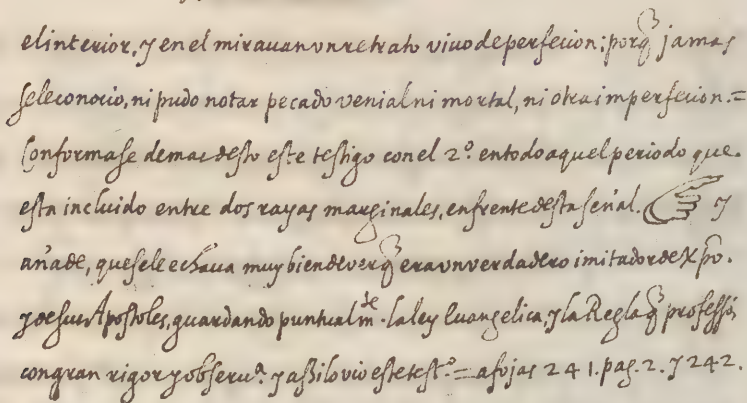 el interior, y en el miravan vn retrato viuo de perfecion; porq̃ jamas
se le conocio, ni pudo notar pecado venial ni mortal, ni otra imperfecion. =
Conformase demas desto este testigo con el 2º. en todo aquel periodo que
esta incluido entre dos rayas marginales, enfrente desta señal. ☞ y
añade, que se le echaua muy bien de ver q̃ era vn verdadero imitador de Xpo.
y de sus Apostoles, guardando puntualmte. la ley Euangelica, y la Regla q̃ professó,
con gran rigor y obseruª. y assi lo vio este testº. = a fojas 241. pag. 2. y 242.